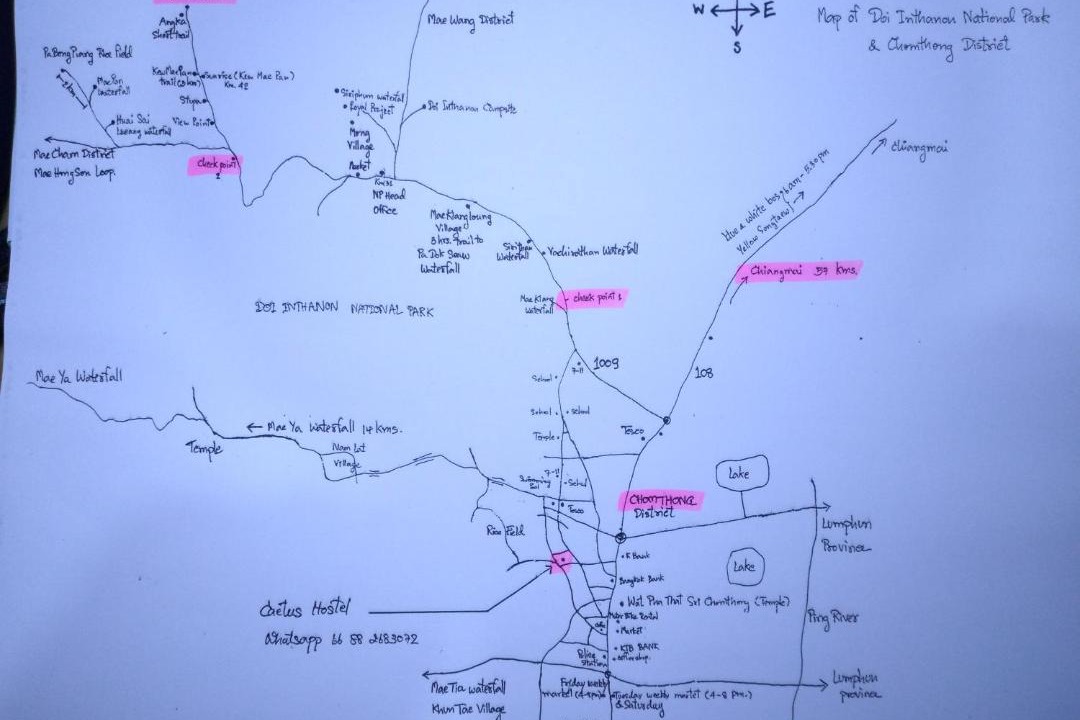 Angka
Short trail
Mae Wang District
W E
S
Map of Doi Inthanon National Park
& Chomthong District
Pa Bong Piang Rice Field
Mae Pan
waterfall
Huai Sai
Leaung waterfall
Stupa
View Point
Mae Cham District
Mae Hng Son Loop.
check point
2
Siriphum waterfall
Royal Project
Doi Inthanon Campsite
Mong
Village
Market
NP Head
Office
Mae Klang Loung
Village
3 hrs. trail to
Pa Dok Seaw
Waterfall
Sirithan
Waterfall
Vachirathan Waterfall
Mae Klang
Waterfall
check point 1
Blue & white bus, 6 am - 5.30 pm
Yellow Songtaew
Chiangmai
Chiangmai 57 kms.
DOI INTHANON NATIONAL PARK
7-11
1009
108
School
School
School
Temple
Tesco
Mae Ya Waterfall
← Mae Ya waterfall 14 kms.
Temple
Village
7-11
School
Swimming
Tesco
CHOMTHONG
District
Lake
Rice Field
Lumphun
Province
K Bank
Lake
Bangkok Bank
Cactus Hostel
Whatsapp 66 88 2683072
Wat Phra That Sri Chomthong (Temple)
Motor Bike Rental
Market
Ping River
KTB BANK
Police
Station
Mae Tia waterfall
Khun Tae Village
Friday weekly
market (4-8 pm)
Tuesday weekly market (4-8 pm.)
& Saturday
Lumphun
province